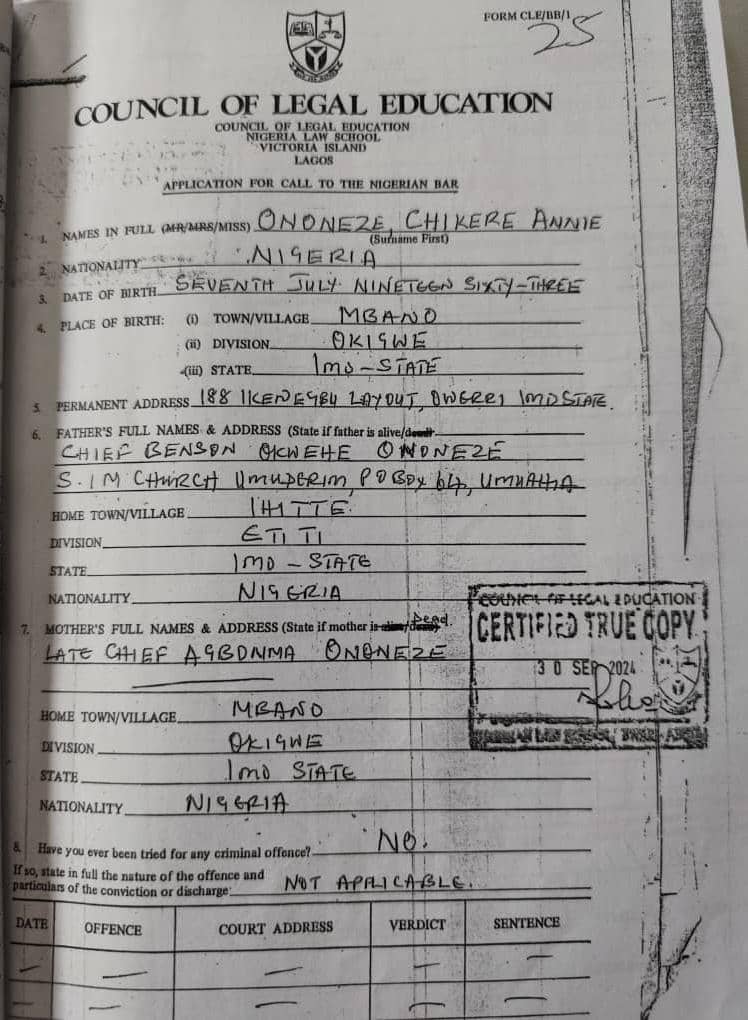 FORM CLE/BB/1
25
COUNCIL OF LEGAL EDUCATION
COUNCIL OF LEGAL EDUCATION
NIGERIA LAW SCHOOL
VICTORIA ISLAND
LAGOS
APPLICATION FOR CALL TO THE NIGERIAN BAR
1. NAMES IN FULL (MR/MRS/MISS) ONONEZE, CHIKERE ANNIE
(Surname First)
2. NATIONALITY NIGERIA
3. DATE OF BIRTH SEVENTH JULY NINETEEN SIXTY-THREE
4. PLACE OF BIRTH: (i) TOWN/VILLAGE MBANO
(ii) DIVISION OKIGWE
(iii) STATE IMO-STATE
5. PERMANENT ADDRESS 188 IKENEGBU LAYOUT, OWERRI IMO STATE.
6. FATHER'S FULL NAMES & ADDRESS (State if father is alive/
CHIEF BENSON OKWEHE ONONEZE
S.I.M CHURCH UMUDERIM, P O BOX 64, UMUAHIA
HOME TOWN/VILLAGE IHITTE
DIVISION ETITI
STATE IMO - STATE
NATIONALITY NIGERIA
7. MOTHER'S FULL NAMES & ADDRESS (State if mother is alive/dead) Dead.
LATE CHIEF AGBONMA ONONEZE
HOME TOWN/VILLAGE MBANO
DIVISION OKIGWE
STATE IMO STATE
NATIONALITY NIGERIA
COUNCIL OF LEGAL EDUCATION
CERTIFIED TRUE COPY
30 SEP 2024
8. Have you ever been tried for any criminal offence? NO.
If so, state in full the nature of the offence and
particulars of the conviction or discharge: NOT APPLICABLE.
DATE OFFENCE COURT ADDRESS VERDICT SENTENCE
— — — — —
— — — — —